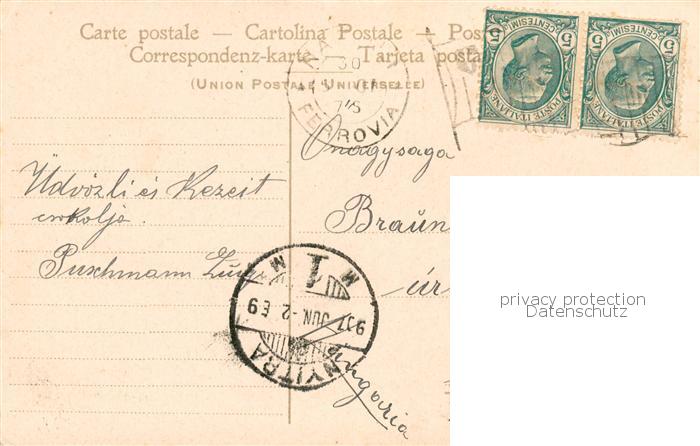 Carte postale — Cartolina Postale — Pos
Correspondenz-karte — Tarjeta posta
(Union Postale Universelle)
30
FERROVIA
5 CENTESIMI 5
POSTE ITALIANE
5 CENTESIMI 5
POSTE ITALIANE
Üdvözli és Kezeit
csokolja
Puschmann
Onagysaga
Braun
úr
ungaria
NYITRA
907 JUN.-2 E9
M 1 M
privacy protection
Datenschutz